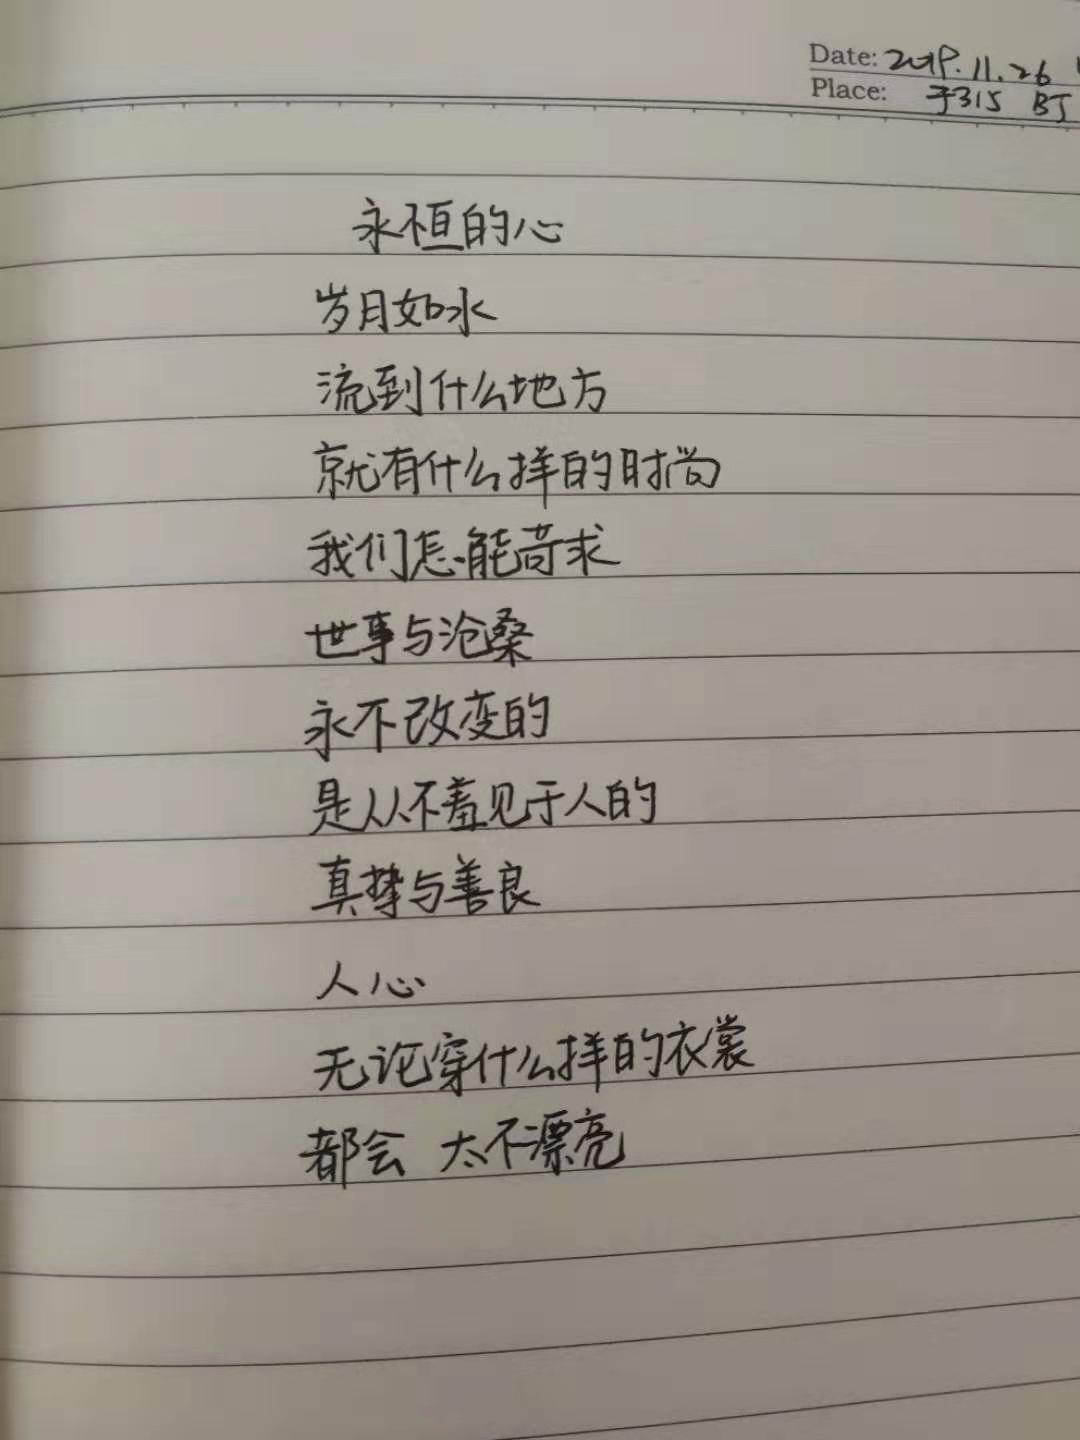 Date: 2019.11.26
Place: 于315 BJ
永恒的心
岁月如水
流到什么地方
就有什么样的时尚
我们怎能苛求
世事与沧桑
永不改变的
是从不羞见于人的
真挚与善良
人心
无论穿什么样的衣裳
都会 太不漂亮